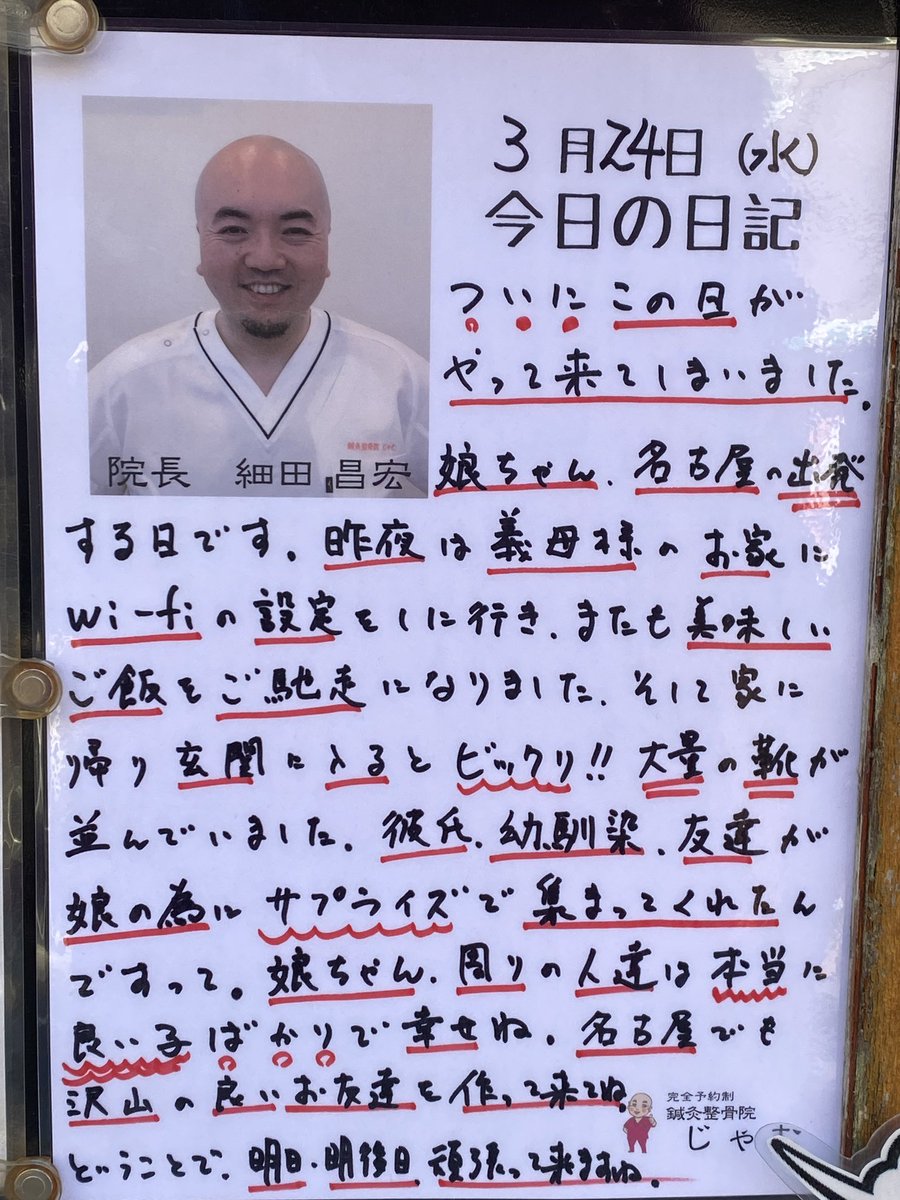 3月24日(水)
今日の日記
ついにこの日が
やって来てしまいました。
娘ちゃん、名古屋へ出発
する日です。昨夜は義母様のお家に
wi-fiの設定をしに行き、またも美味しい
ご飯をご馳走になりました。そして家に
帰り玄関に入るとビックリ!!大量の靴が
並んでいました。彼氏、幼馴染、友達が
娘の為にサプライズで集まってくれたん
ですって。娘ちゃん、周りの人達は本当に
良い子ばかりで幸せね。名古屋でも
沢山の良いお友達を作って来てね
ということで、明日・明後日、頑張って来ますね。
院長 細田 昌宏
完全予約制
鍼灸整骨院
じゃ